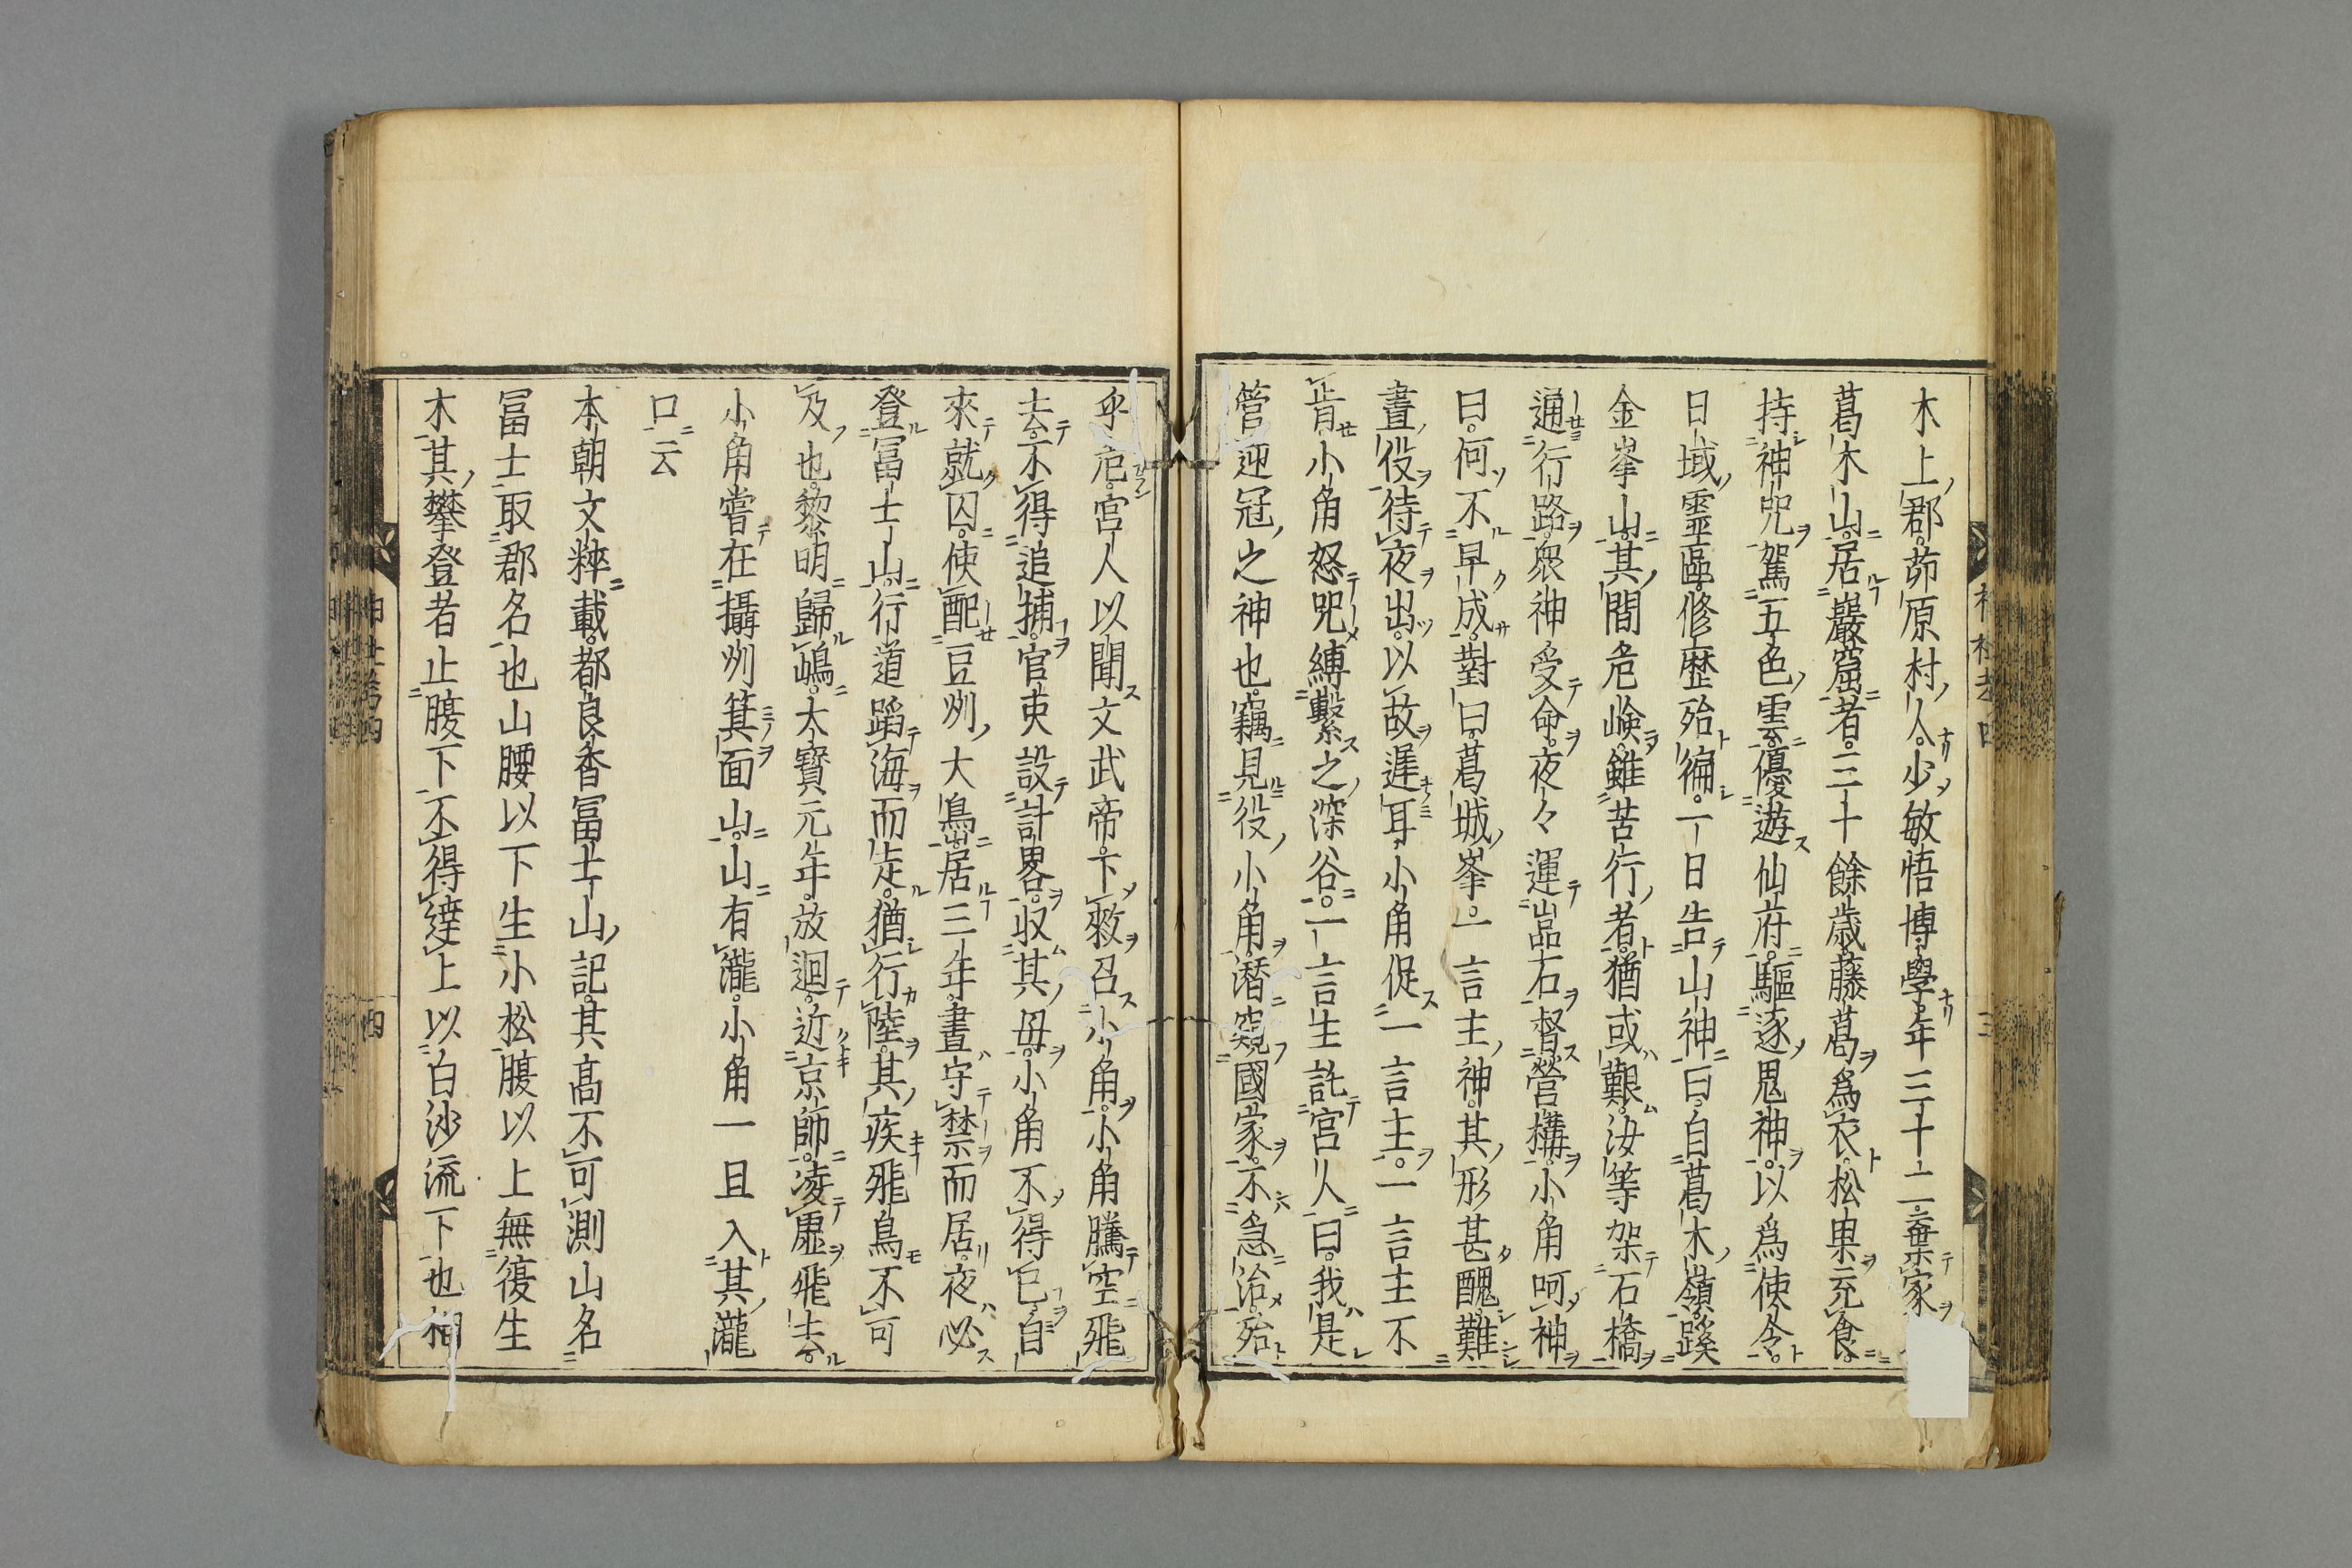 木上郡茆原村人少敏悟博學年三十二棄家
葛木山居巖窟者三十餘歳藤葛爲衣松果充食
持神咒駕五色雲優遊仙府驅逐鬼神以爲使令
日域靈區修歷殆徧一日告山神曰自葛木嶺蹊
金峯山其間危嶮雖苦行者猶或艱汝等架石橋
通行路衆神受命夜々運嵓石督營構小角呵神
曰何不早成對曰葛城峯一言主神其形甚醜難
晝役待夜出以故遲耳小角促一言主一言主不
肯小角怒咒縛繫之深谷一言主託宮人曰我是
管迎冠之神也竊見役小角潛窺國家不急治殆
乎危宮人以聞文武帝下敕召小角小角騰空飛
去不得追捕官吏設計畧収其母小角不得已自
來就囚使配豆州大嶋居三年晝守禁而居夜必
登冨士山行道蹈海而走猶行陸其疾飛鳥不可
及也黎明歸嶋大寶元年放迴近京師凌虛飛去
小角嘗在攝州箕面山山有瀧小角一旦入其瀧
口云
本朝文粹載都良香冨士山記其高不可測山名
冨士取郡名也山腰以下生小松腹以上無復生
木其攀登者止腹下不得達上以白沙流下也相
神社考四
三
神社考四
四